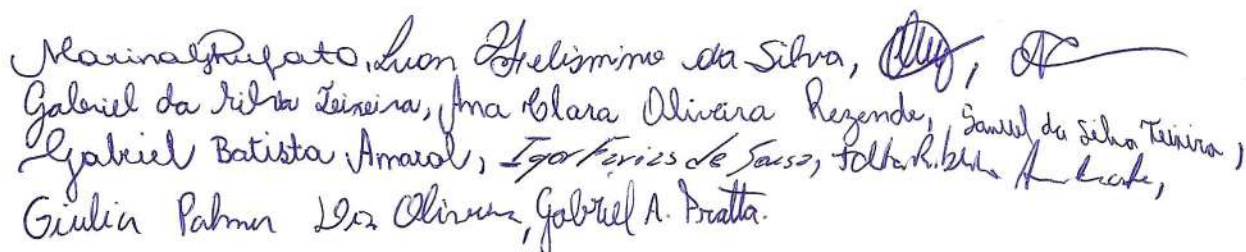 Marina Rufato, Luan Felismino da Silva,
Gabriel da Silva Teixeira, Ana Clara Oliveira Rezende, Samuel da Silva Teixeira,
Gabriel Batista Amaral, Igor Farias de Sousa,
Giulia Palma Dias Oliveira, Gabriel A. Pratta.